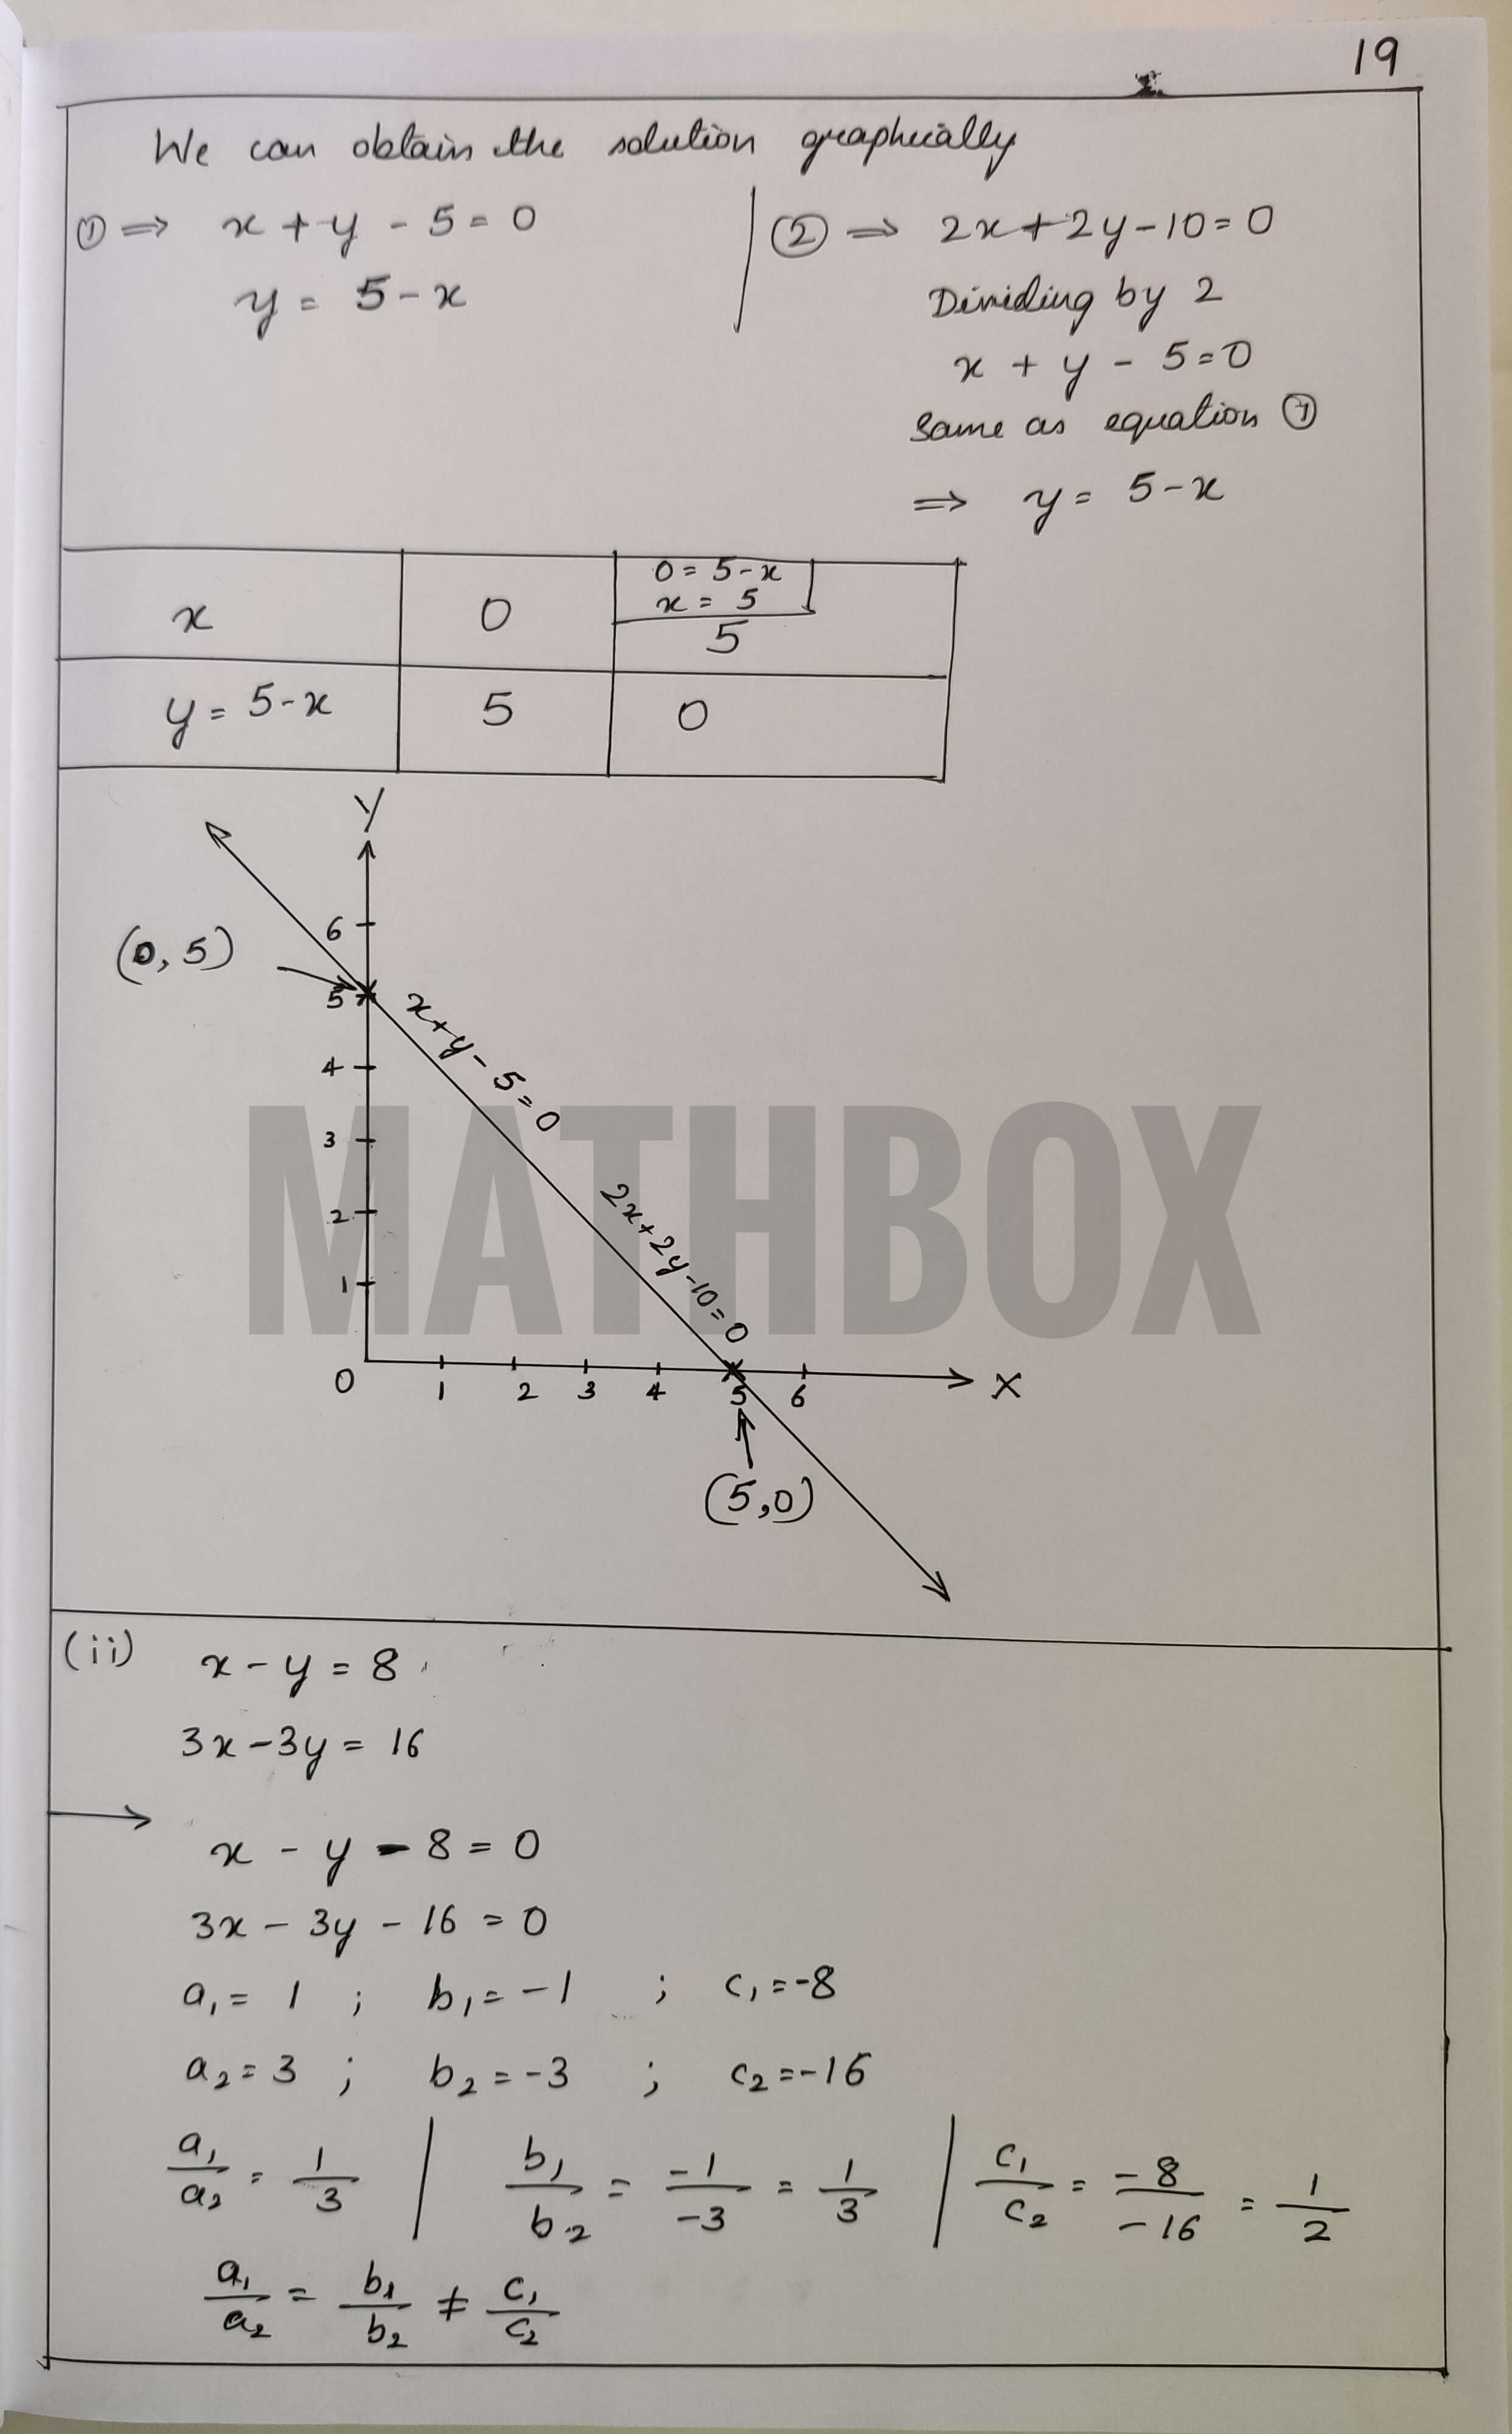 19
We can obtain the solution graphically
① ⇒ x + y - 5 = 0
y = 5 - x
② ⇒ 2x + 2y - 10 = 0
Dividing by 2
x + y - 5 = 0
Same as equation ①
⇒ y = 5 - x
0 = 5 - x
x = 5
x 0 5
y = 5 - x 5 0
Y
6
(0, 5)
5
x + y - 5 = 0
4
3
2x + 2y - 10 = 0
2
1
MATHBOX
0 1 2 3 4 5 6 X
(5,0)
(ii) x - y = 8
3x - 3y = 16
→
x - y - 8 = 0
3x - 3y - 16 = 0
a₁ = 1 ; b₁ = -1 ; c₁ = -8
a₂ = 3 ; b₂ = -3 ; c₂ = -16
a₁/a₂ = 1/3 | b₁/b₂ = -1/-3 = 1/3 | c₁/c₂ = -8/-16 = 1/2
a₁/a₂ = b₁/b₂ ≠ c₁/c₂